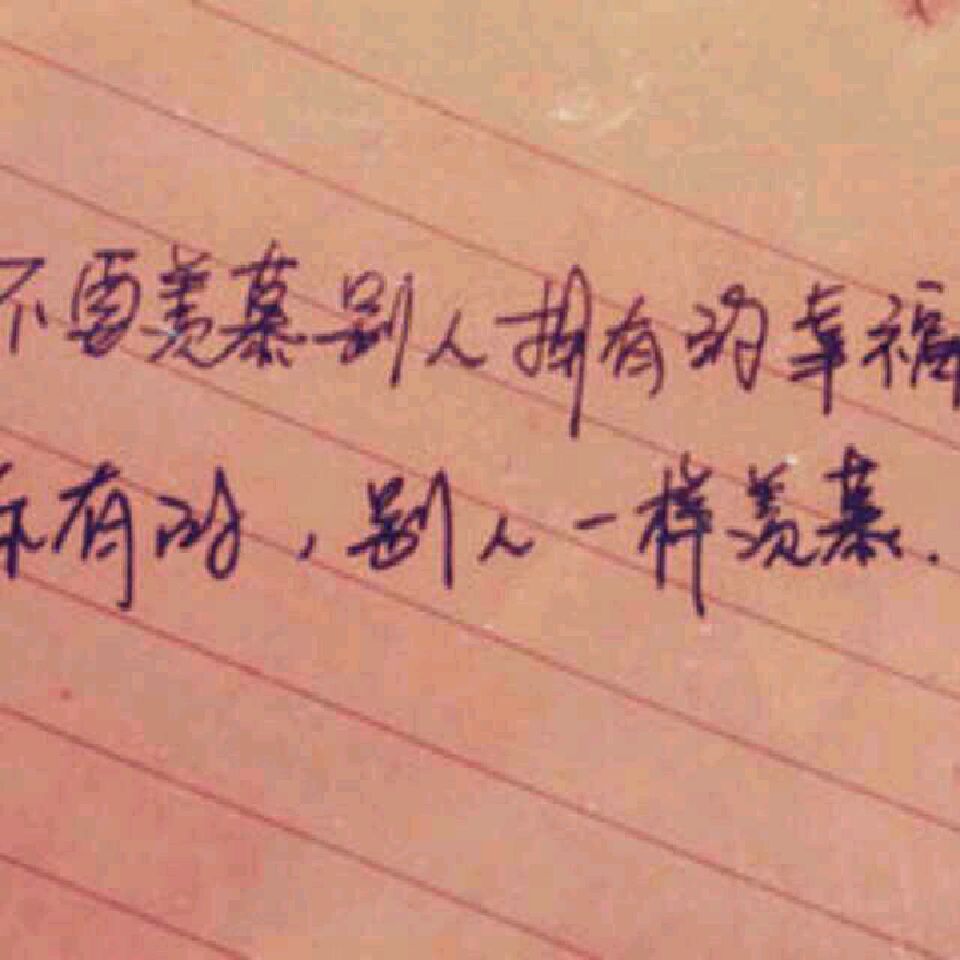 不要羡慕别人拥有的幸福
你有的，别人一样羡慕.